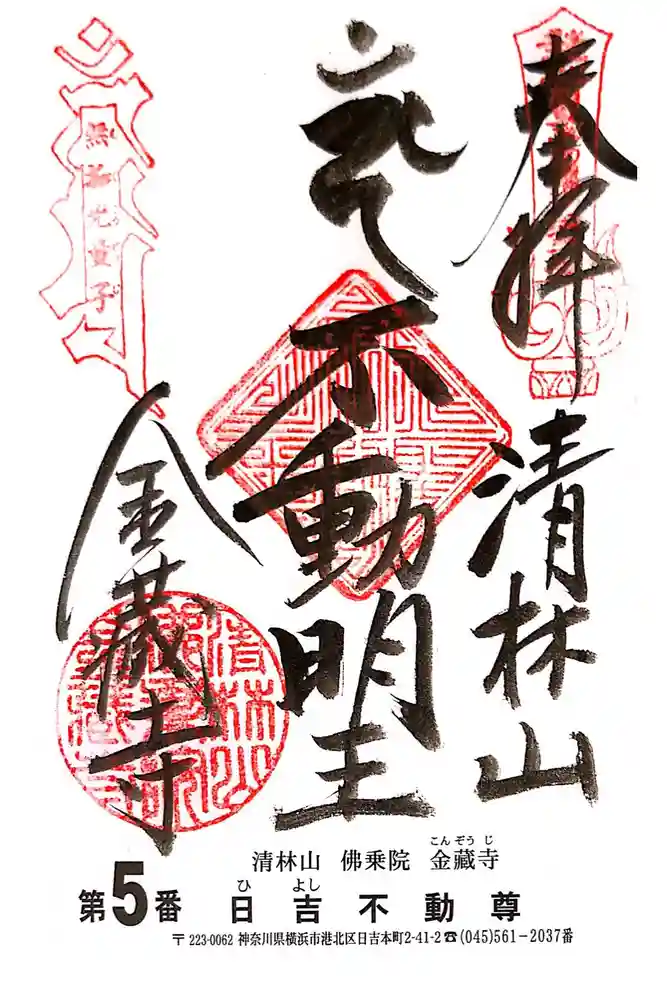 奉拝
清林山
不動明王
金蔵寺
無垢光童子
清林山　佛乗院　金藏寺
こんぞうじ
第5番　日吉不動尊
ひよし
〒223-0062 神奈川県横浜市港北区日吉本町2-41-2☎(045)561−2037番